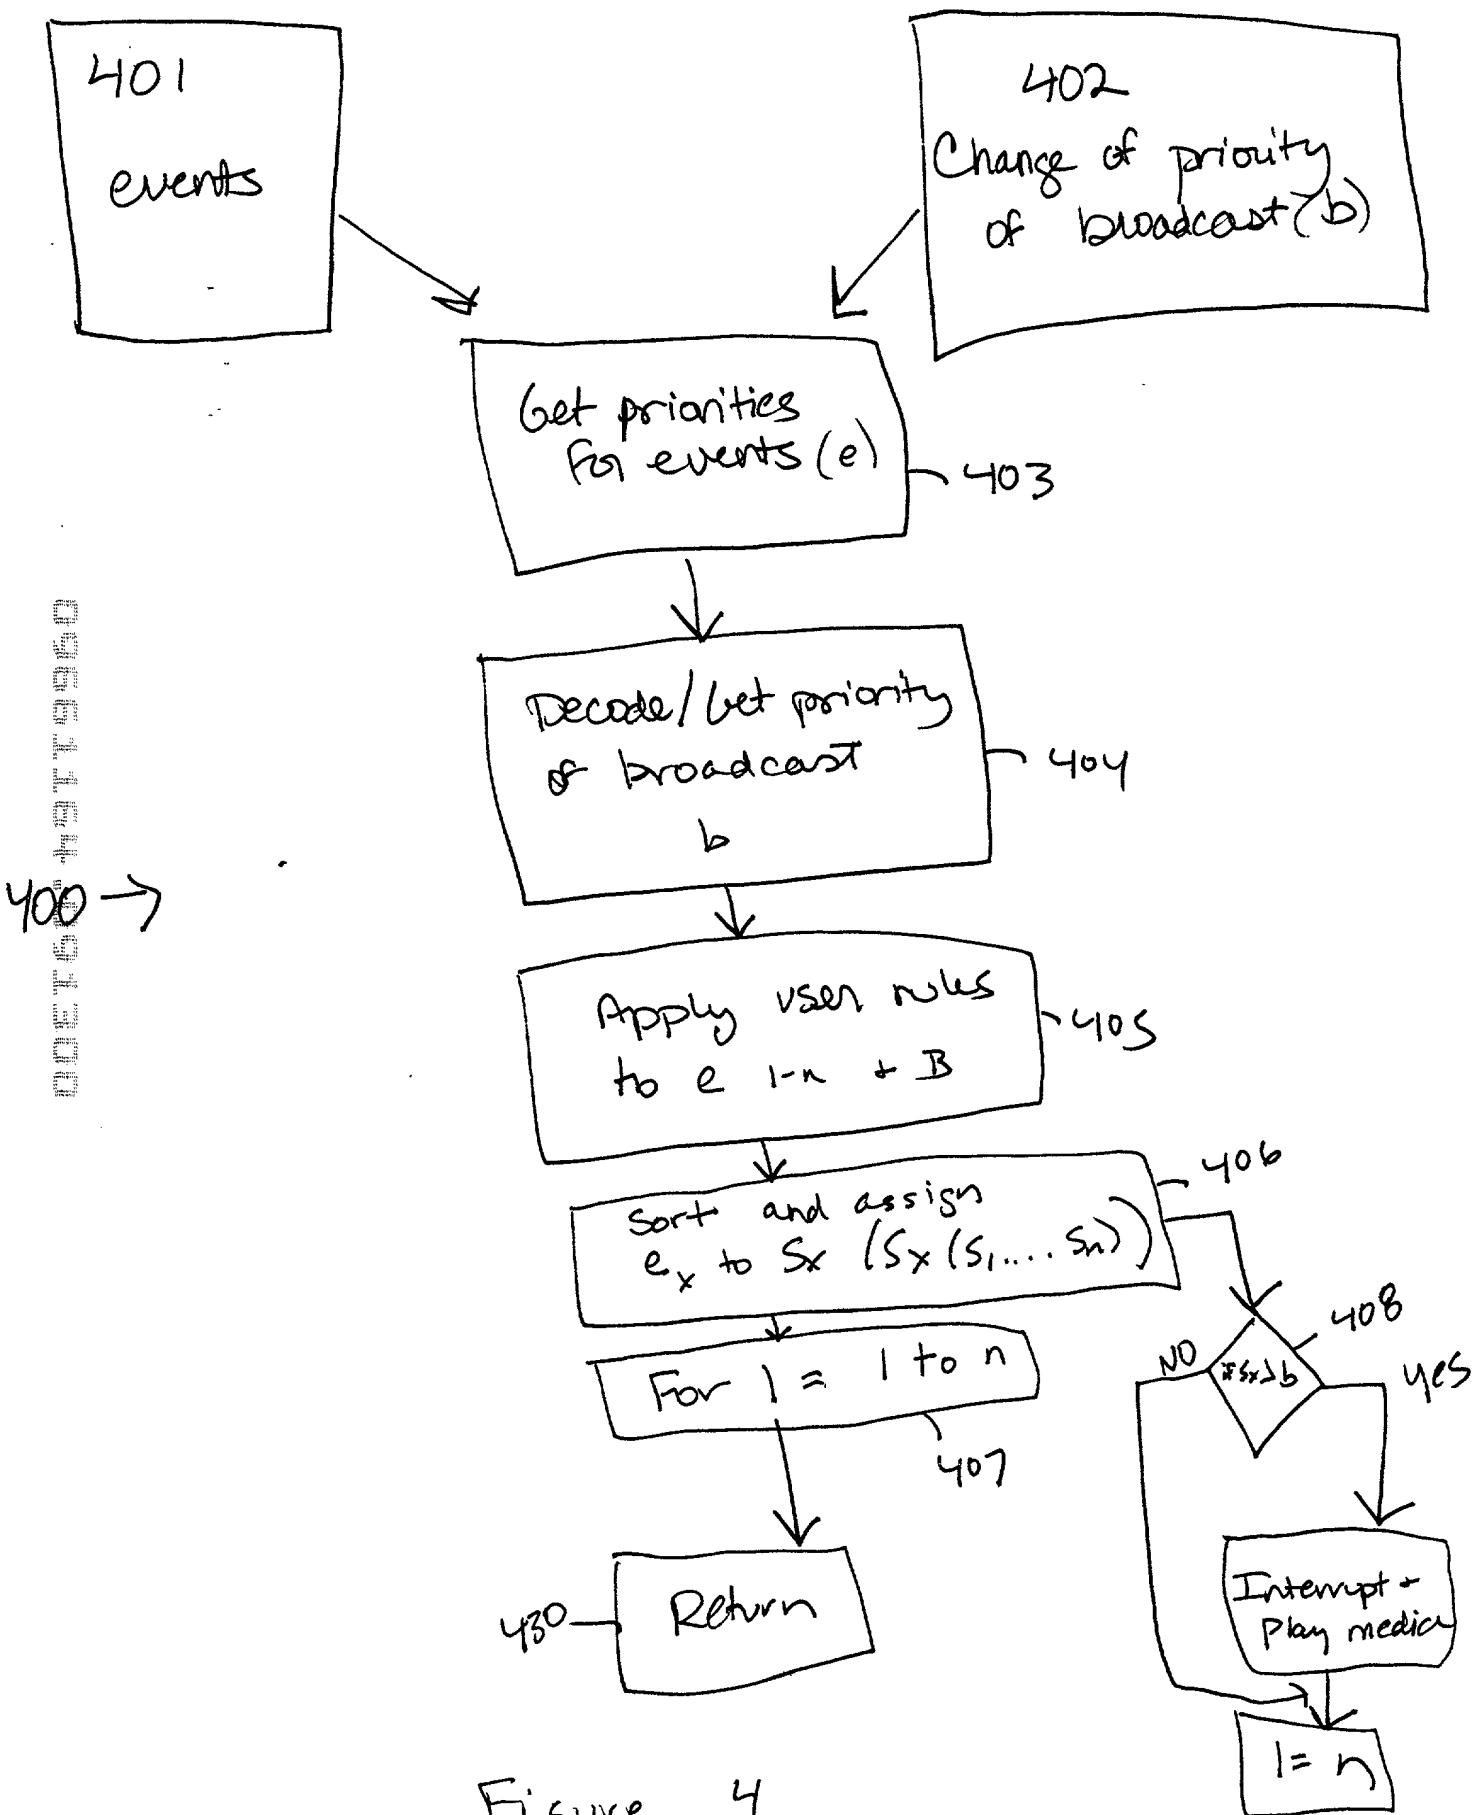 401
events
402
Change of priority
of broadcast (b)
Get priorities
for events (e)
403
Decode/Get priority
of broadcast
b
404
400
Apply user rules
to e 1-n + B
405
Sort and assign
e x to Sx (Sx (S1,.... Sn))
406
For 1 = 1 to n
407
408
NO
if Sx > b
yes
Interrupt +
Play media
Return
430
1 = n
Figure 4